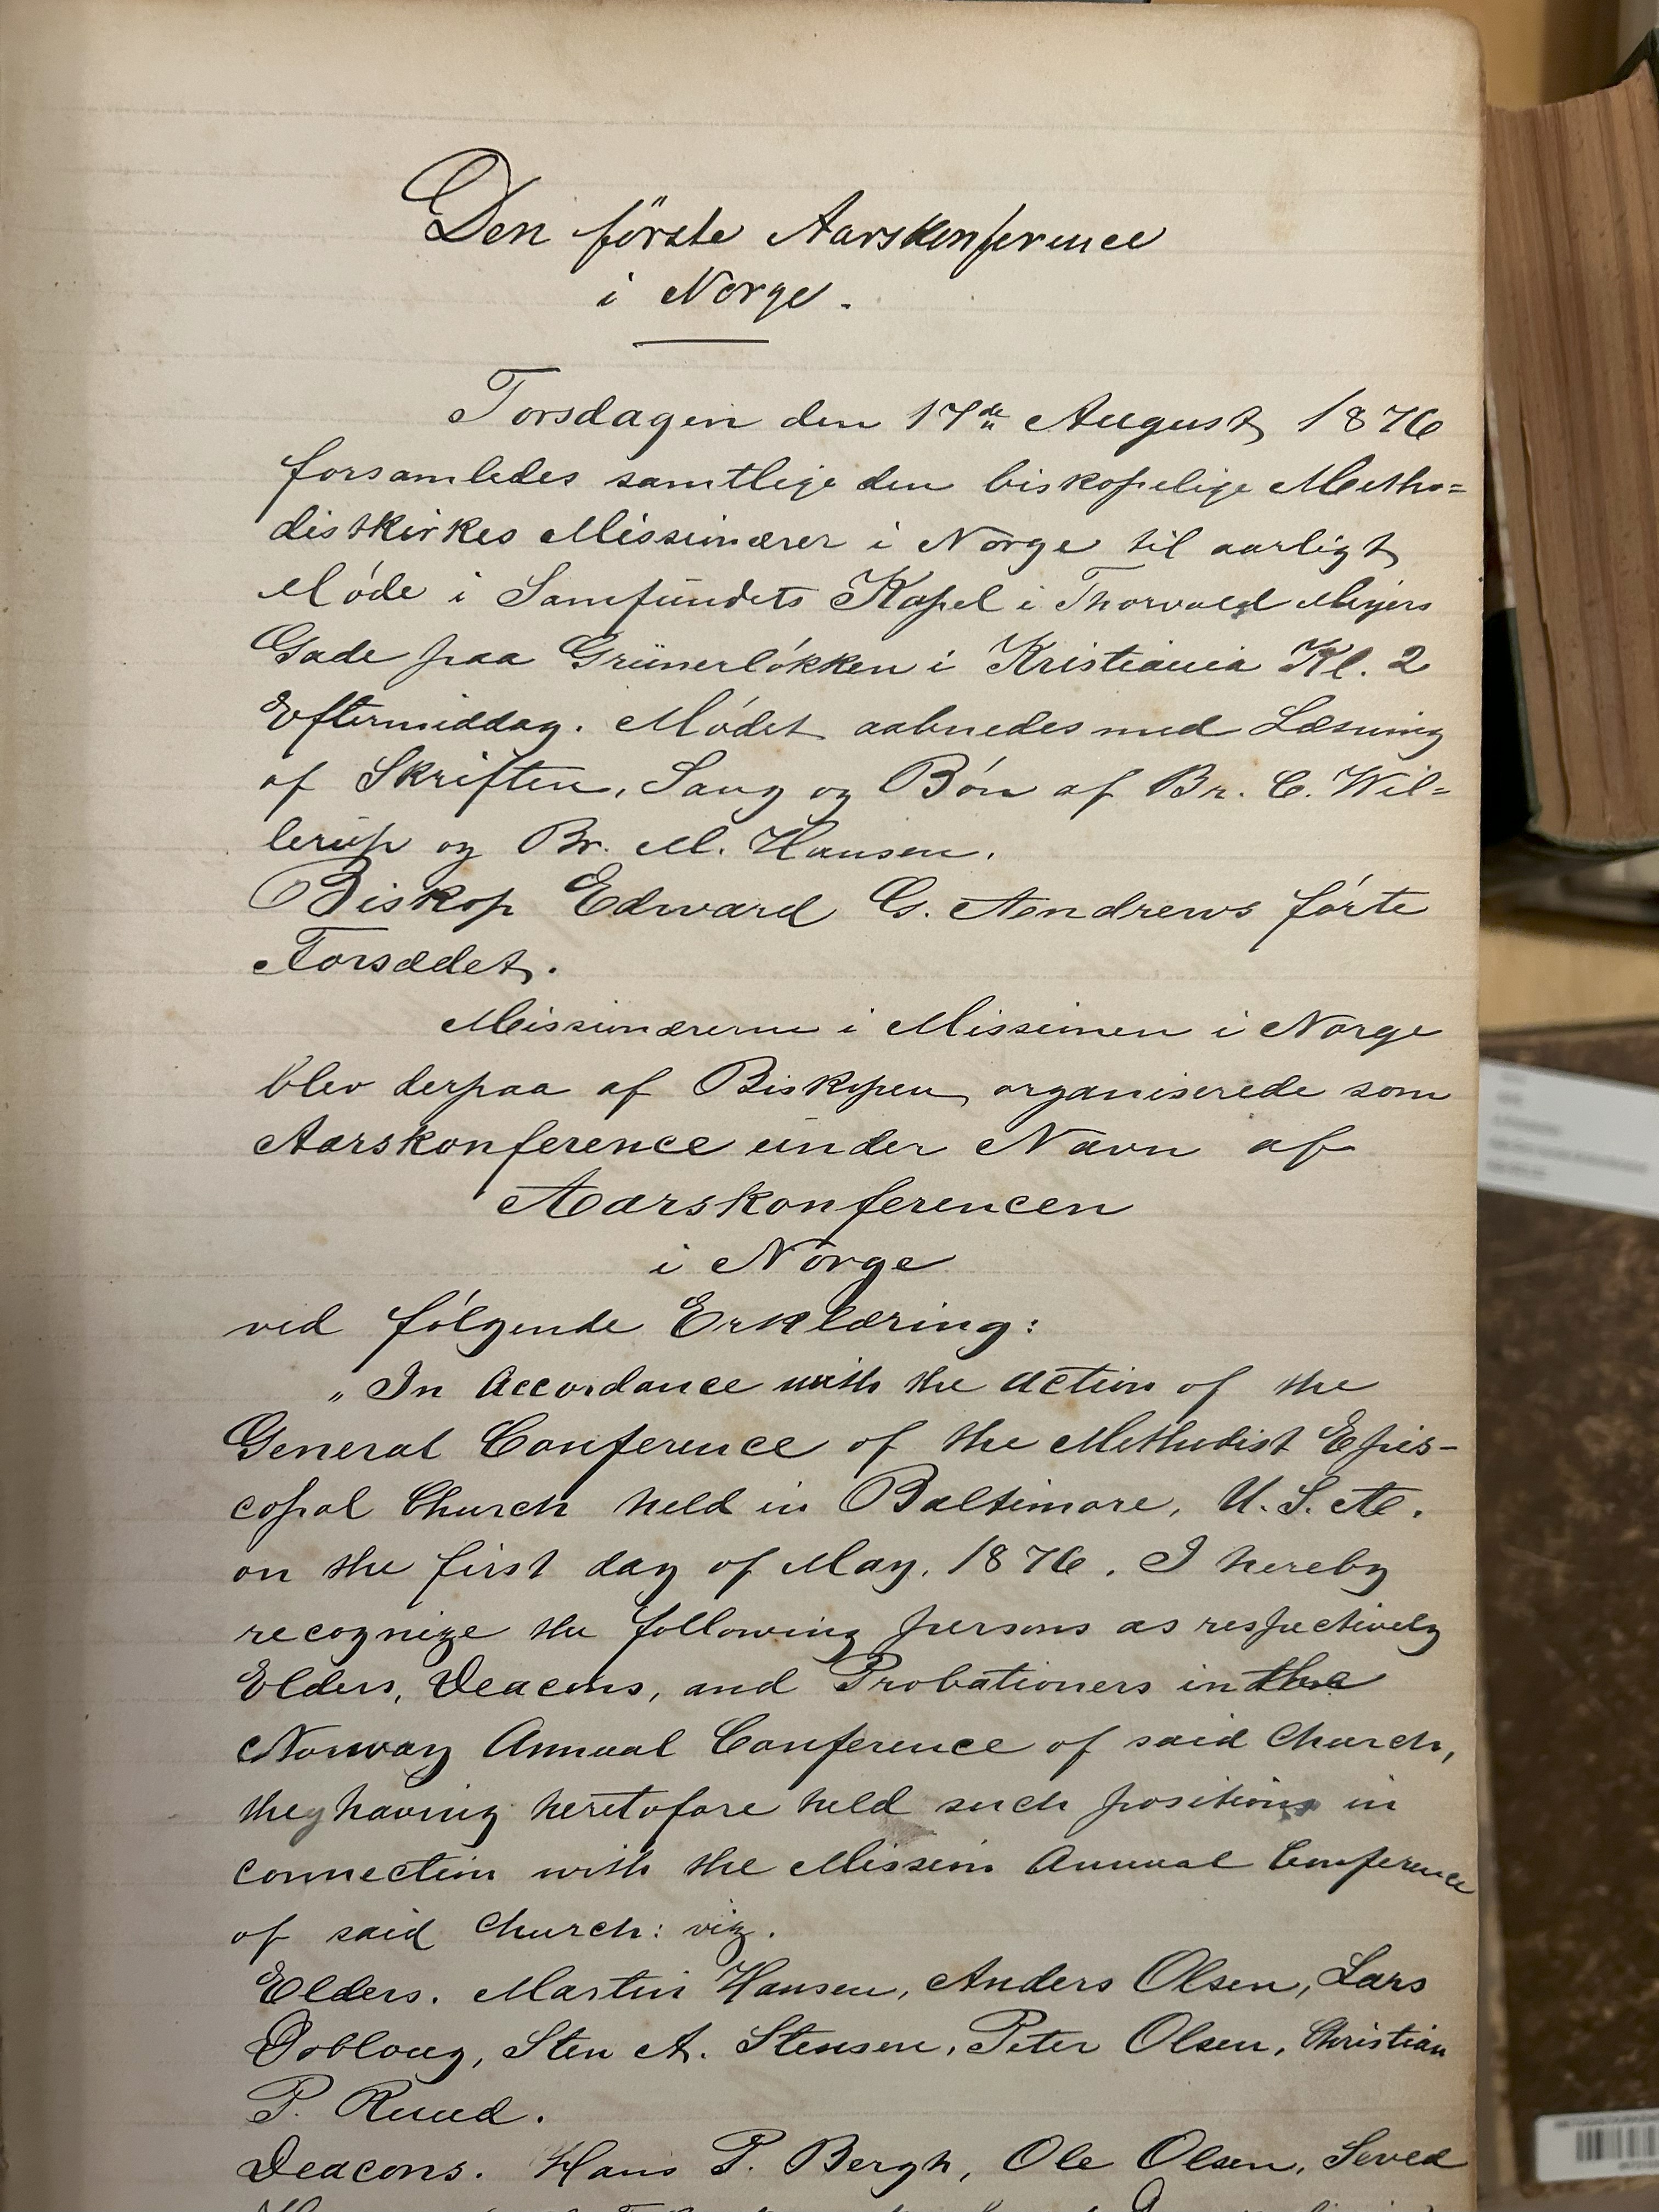 Den förste Aarskonference
i Norge.
Torsdagen den 17de August 1876
forsamledes samtlige den biskopelige Metho=
distkirkes Missionærer i Norge til aarligt
Møde i Samfundets Kapel i Thorvald Meyers
Gade paa Grünerløkken i Kristiania Kl. 2
Eftermiddag. Mødet aabnedes med Læsning
af Skriften, Sang og Bøn af Br. C. Wil=
lerup og Br. M. Hansen.
Biskop Edward G. Andrews førte
Forsædet.
Missionærerne i Missionen i Norge
blev derpaa af Biskopen organiserede som
Aarskonference under Navn af
Aarskonferencen
i Norge
ved følgende Erklæring:
„In Accordance with the action of the
General Conference of the Methodist Epis-
copal Church held in Baltimore, U.S.A.
on the first day of May, 1876. I hereby
recognize the following persons as respectively
Elders, Deacons, and Probationers in the
Norway Annual Conference of said Church,
they having heretofore held such positions in
connection with the Mission Annual Conference
of said Church: viz.
Elders. Martin Hansen, Anders Olsen, Lars
Dobloug, Sten A. Stensen, Peter Olsen, Christian
P. Ruud.
Deacons. Hans P. Bergh, Ole Olsen, Seved